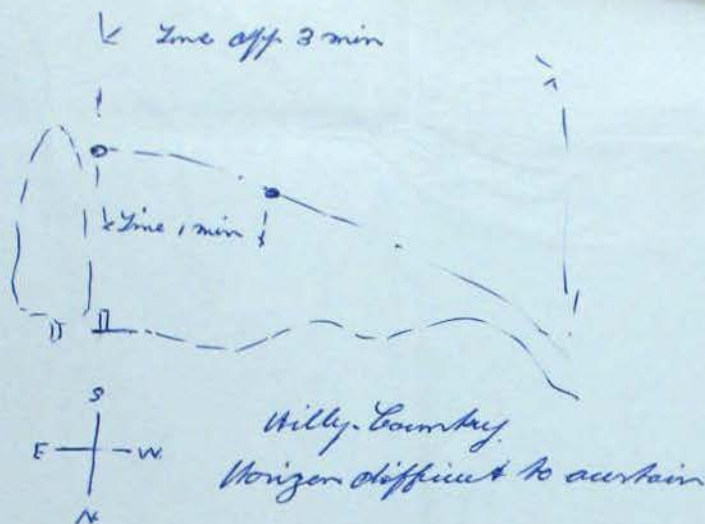 Time app. 3 min
Time 1 min
S
E W.
N
Hilly. Country.
Horizen difficult to asertain